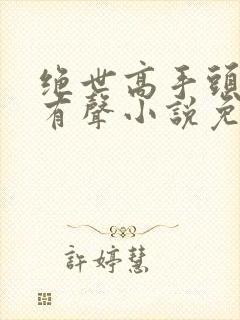 绝世高手頭
有聲小說免
許婷慧